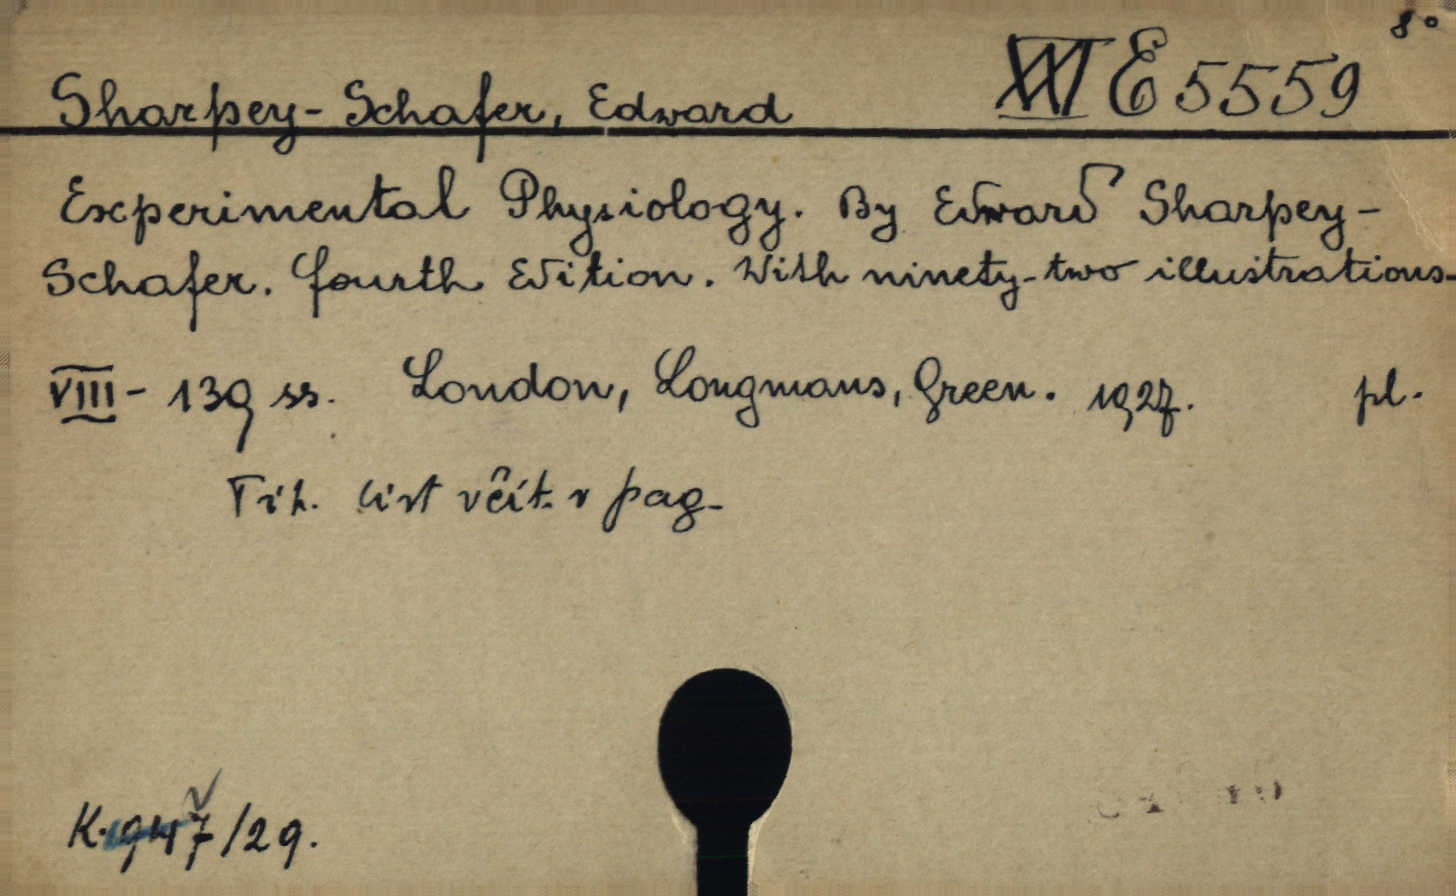 8°
Sharpey-Schafer, Edward XXI E 5559
Experimental Physiology. By Edward Sharpey-
Schafer. fourth Edition. With ninety-two illustrations-
VIII - 139 ss. London, Longmans, Green. 1927. pl.
Tit. list včít. v pag.
K. 1947/29.